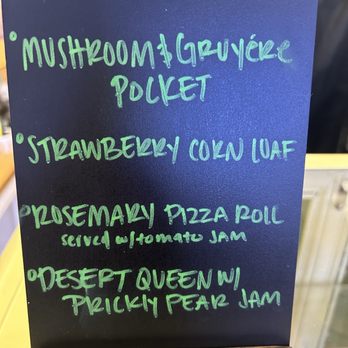 ° MUSHROOM & GRUYÉRE
POCKET
° STRAWBERRY CORN LOAF
° ROSEMARY PIZZA ROLL
served w/tomato JAM
° DESERT QUEEN W/
PRICKLY PEAR JAM